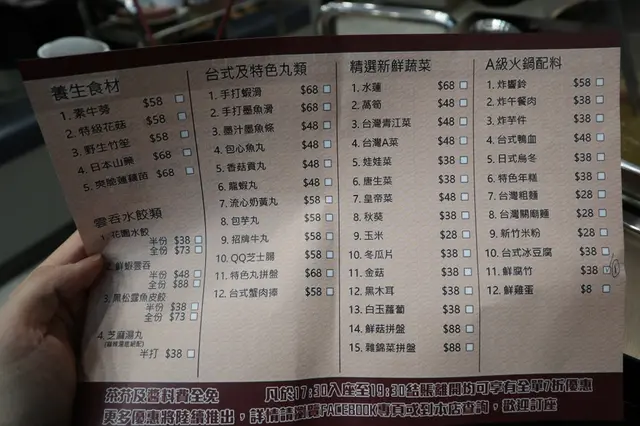 養生食材
1. 素牛蒡 $58
2. 特級花菇 $58
3. 野生竹笙 $58
4. 日本山藥 $68
5. 爽脆蓮藕苗 $68
雲吞水餃類
1. 花園水餃
半份 $38
全份 $73
2. 鮮蝦雲吞
半份 $48
全份 $88
3. 黑松露魚皮餃
半份 $38
全份 $73
4. 芝麻湯丸
半打 $38
台式及特色丸類
1. 手打蝦滑 $68
2. 手打墨魚滑 $68
3. 墨汁墨魚條 $48
4. 包心魚丸 $48
5. 香菇貢丸 $48
6. 龍蝦丸 $48
7. 流心奶黃丸 $58
8. 包芋丸 $58
9. 招牌牛丸 $58
10. QQ芝士腸 $58
11. 特色丸拼盤 $68
12. 台式蟹肉捧 $58
精選新鮮蔬菜
1. 水蓮 $68
2. 萵筍 $48
3. 台灣青江菜 $48
4. 台灣A菜 $48
5. 娃娃菜 $38
6. 唐生菜 $38
7. 皇帝菜 $48
8. 秋葵 $38
9. 玉米 $28
10. 冬瓜片 $38
11. 金菇 $38
12. 黑木耳 $38
13. 白玉蘿蔔 $38
14. 鮮菇拼盤 $88
15. 雜錦菜拼盤 $88
A級火鍋配料
1. 炸響鈴 $58
2. 炸午餐肉 $38
3. 炸芋件 $38
4. 台式鴨血 $48
5. 日式烏冬 $38
6. 特色年糕 $38
7. 台灣粗麵 $28
8. 台灣關廟麵 $28
9. 新竹米粉 $28
10. 台式冰豆腐 $38
11. 鮮腐竹 $38
12. 鮮雞蛋 $8
茶芥及醬料費全免 凡於17:30入座至19:30結賬離開均可享有全單7折優惠
更多優惠將陸續推出，詳情請瀏覽FACEBOOK專頁或到本店查詢，歡迎訂座